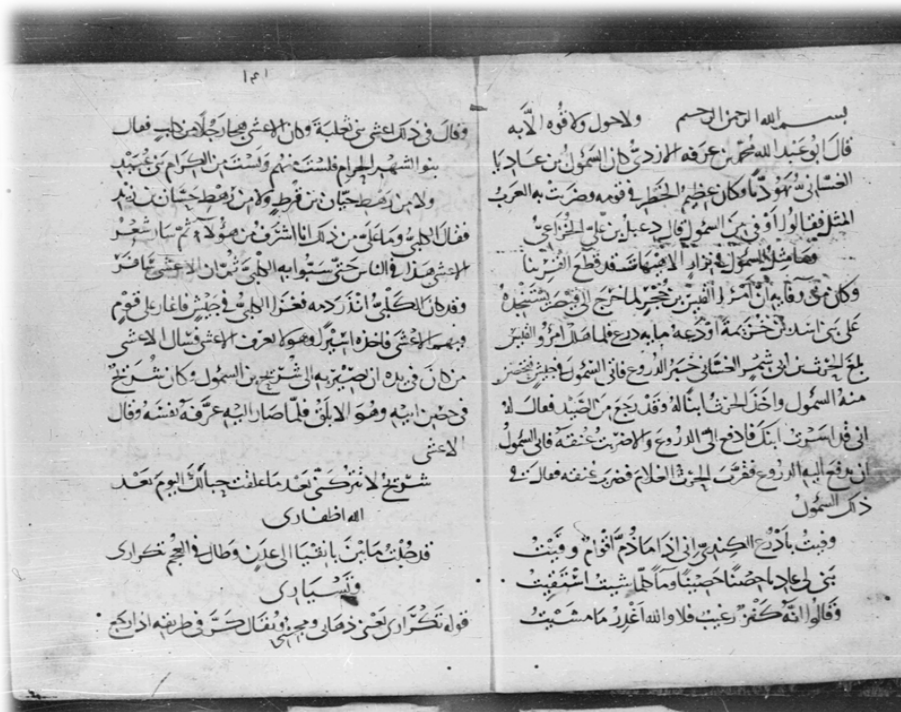 بسم الله الرحمن الرحيم ولا حول ولا قوه الا به
قال ابو عبد الله محمد بن عرفه الازدي كان السمول بن عاديا
الغساني يهوديا وكان عظيم الخطر في قومه وضربت به العرب
المثل فقالوا اوفى من السمول قال دعبل بن علي الخزاعي
السمول في نزار قد قطع القرينا
وكان من وفايه ان امرا القيس بن حجر لما خرج الى قيصر يستنجده
على بني اسد بن خزيمة اودعه مايه درع فلما هلك امرؤ القيس
بلغ الحرث بن ابي شمر الغساني خبر الدروع فاتى السمول في جيش فتحصن
منه السمول واخذ الحرث ابنا له وقد رجع من الصيد فقال له
اني قد اسرت ابنك فادفع الي الدروع والا ضربت عنقه فابى السمول
ان يدفع اليه الدروع فقرب الحرث الغلام فضرب عنقه فقال في
ذلك السمول
وفيت بادرع الكندي اني اذا ما ذم اقوام وفيت
بنى لي عاديا حصنا حصينا وما كلما شيت استقيت
وقالوا انه كنز رغيب فلا والله اغدر ما مشيت
١٤١
وقال في ذلك اعشى بني ثعلبة وكان الاعشى هجا رجلا من كلب فقال
بنو الشهر الحرام فلست منهم ولست من الكرام بني عبيد
ولا من رهط حيان بن قرط ولا من رهط حسان بن زيد
فقال الكلبي وما علي من ذلك انا اشرف من هؤلاء ثم سار شعر
الاعشى هذا في الناس حتى سبوا به الكلبي ثم ان الاعشى
وقد كان الكلبي انذر دمه فغزا الكلبي في جيش فاغار على قوم
فيهم الاعشى فاخذه اسيرا وهو لا يعرف الاعشى فسال الاعشى
من كان في يده ان يصير به الى شريح بن السمول وكان شريح
في حصن ابيه وهو الابلق فلما صار اليه عرفه نفسه وقال
الاعشى
شريح لا تتركني بعد ما علقت حبالك اليوم بعد
الله اظفاري
قد جلت ما بين بانقيا الى عدن وطال في العجم تكراري
وتسياري
قوله تكراري يعني ذهابي ومجيي ويقال كر في طريقه اذا رجع